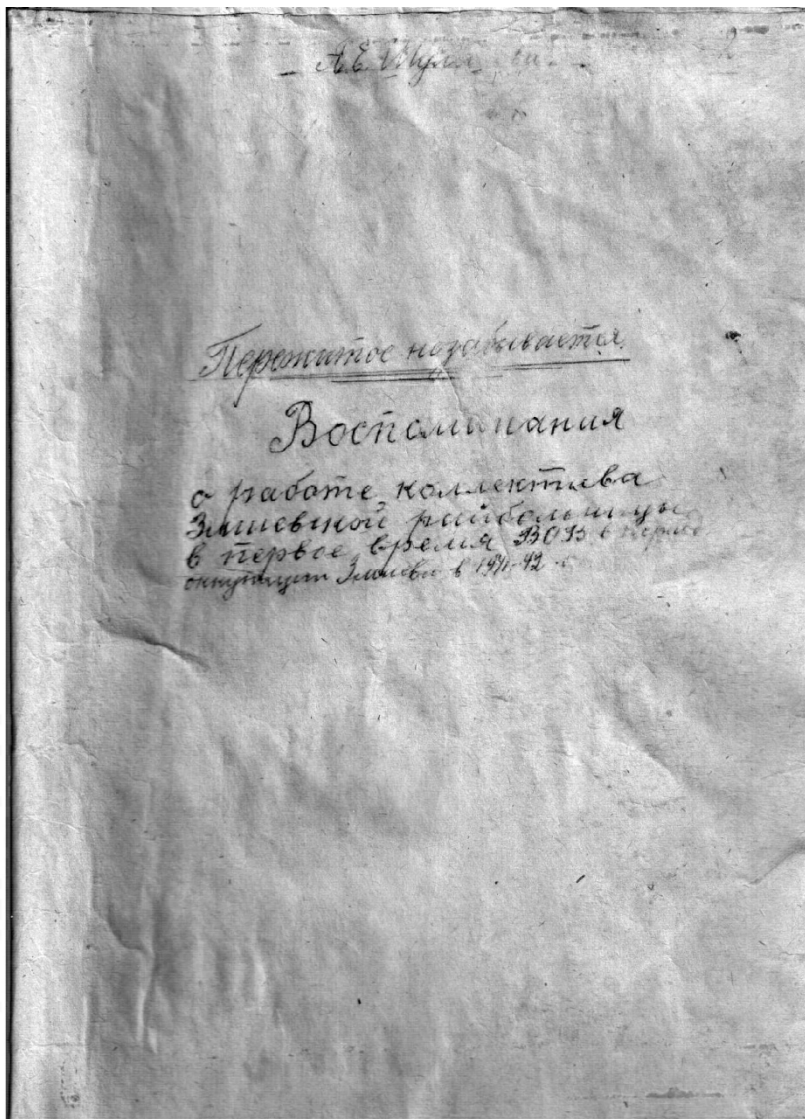 А.Е.
Пережитое незабывается
Воспоминания
о работе коллектива
Змиевской райбольницы
в первое время ВОВ в период
оккупации Змиева в 1941-42